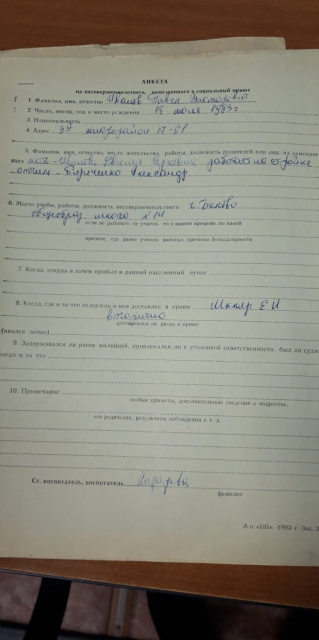 АНКЕТА
на несовершеннолетнего, доставленного в социальный приют
1. Фамилия, имя, отчество Иванов Павел Викторович
2. Число, месяц, год и место рождения 15 июля 1983 г
3. Национальность
4. Адрес 3й микрорайон 17-68
5. Фамилия, имя, отчество, место жительства, работы, должность родителей или лиц, их заменяющих
мать - Иванова Евгения работает на стройке
отчим - Александр
6. Место учебы, работы, должность несовершеннолетнего
школа №14
если не работает, не учится, то с какого времени, по какой
причине, где ранее учился, работал, причины безнадзорности
7. Когда, откуда и зачем прибыл в данный населенный пункт
8. Когда, где и за что задержан и кем доставлен в приют Шкляр Е.И
доставлялся ли ранее в приют
(явился лично)
9. Задерживался ли ранее милицией, привлекался ли к уголовной ответственности, был ли судим,
когда и за что
10. Примечание
особые приметы, дополнительные сведения о подростке,
его родителях, результаты наблюдения и т. д.
Ст. воспитатель, воспитатель
фамилия
А-о «ПП» 1993 г. Зак.